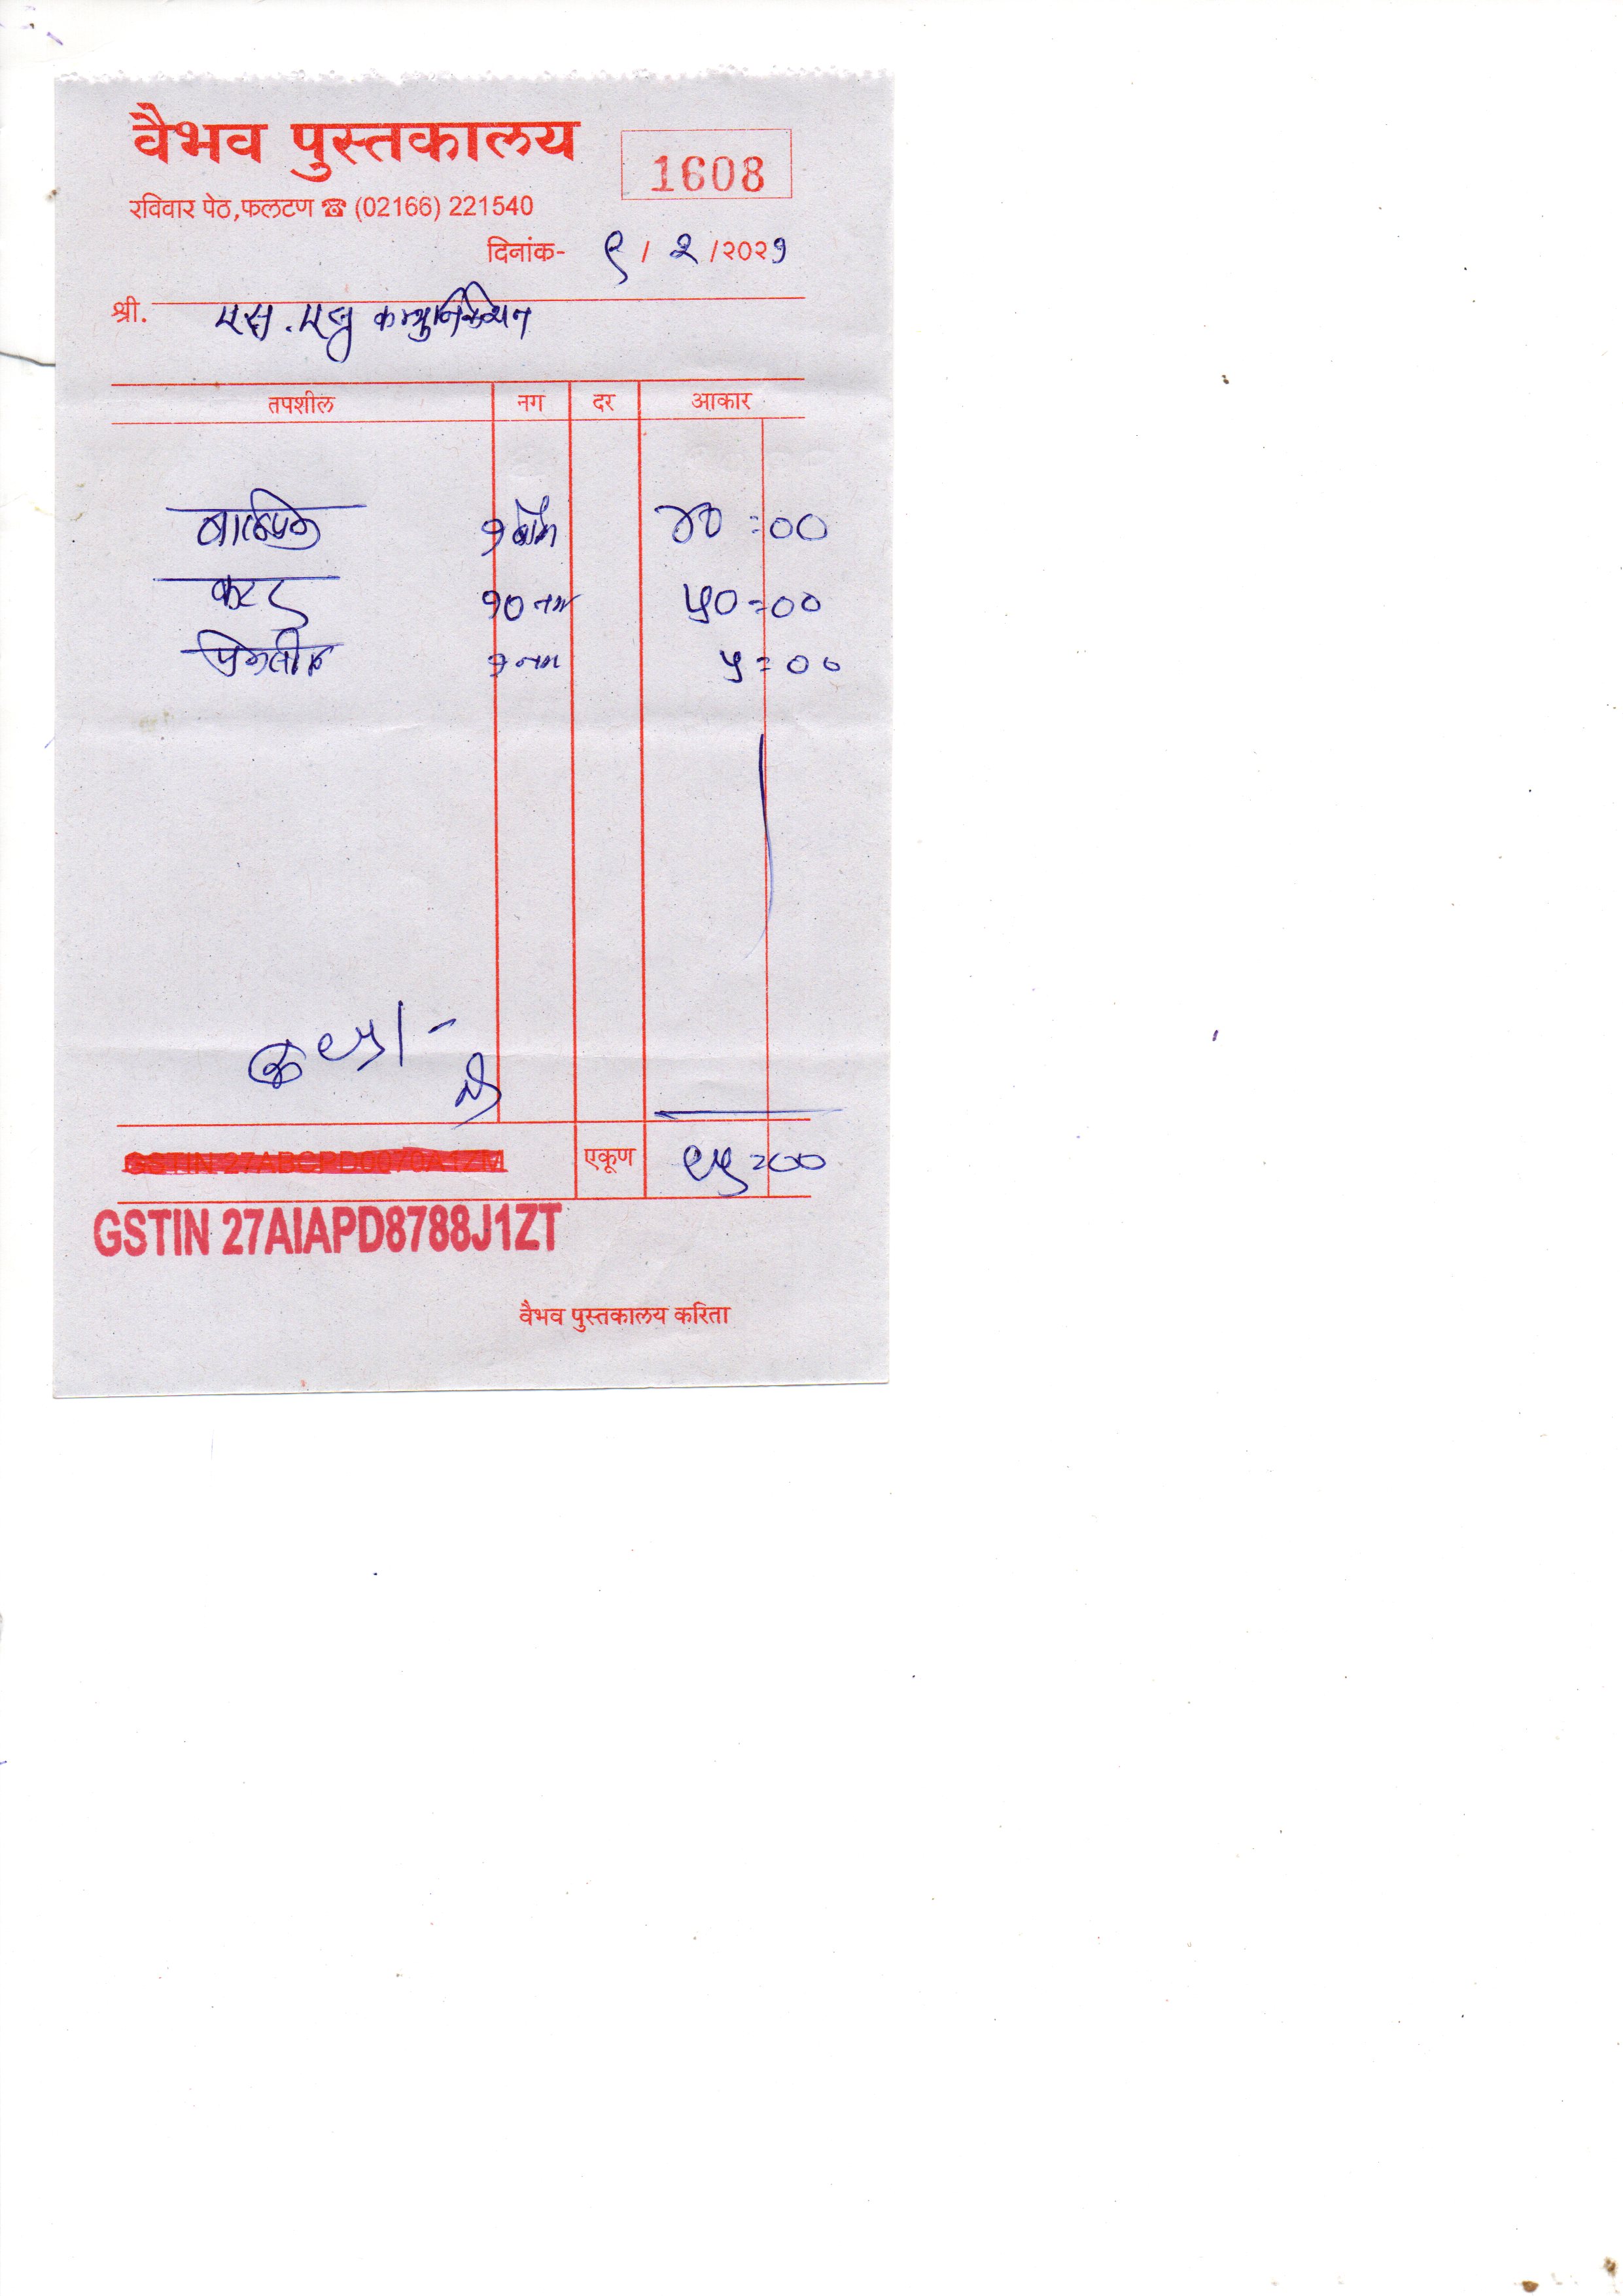 वैभव पुस्तकालय
1608
रविवार पेठ,फलटण ☎ (02166) 221540
दिनांक- ९ / २ /२०२१
श्री. एस. एन्ड कम्युनिकेशन
तपशील नग दर आकार
बालपेन १ बॉक्स ४०=००
कटर १० नग ५०=००
पेन्सील १ नग ५=००
९५/-
एकूण ९५=००
GSTIN 27AIAPD8788J1ZT
वैभव पुस्तकालय करिता